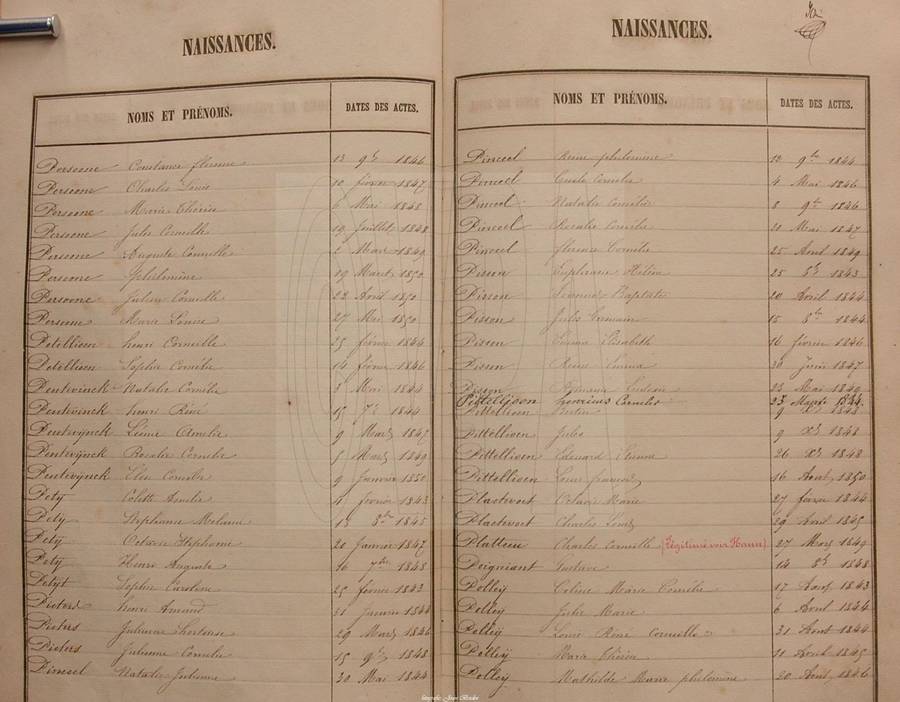 NAISSANCES.
NOMS ET PRÉNOMS. DATES DES ACTES.
Persoone Constance 13 9bre 1846
Persoone Charles Louis 10 février 1847
Persoone Marie Thérèse 6 Mai 1848
Persoone Julie Corneille 19 Juillet 1848
Persoone Auguste Corneille 2 Mars 1849
Persoone Philomène 19 Mars 1850
Persoone Julien Corneille 22 Avril 1850
Persoone Marie Louise 27 Mai 1850
Petellioen henri Corneille 25 février 1844
Petellioen Sophie Cornélie 14 février 1846
Penterinck Natalie Cornélie 3 Mai 1844
Penterinck henri René 15 1844
Penterijnck Amélie 9 Mars 1847
Penterijnck Rosalie Cornélie 5 Mars 1849
Penterijnck Cornélie 9 Janvier 1850
Pety Colette Amélie 4 février 1843
Pety Stéphanie Mélanie 13 8bre 1845
Pety Octavie Stéphanie 20 Janvier 1847
Pety Henri Auguste 16 1848
Petyt Sophie Caroline 25 février 1843
Pieters henri Amand 31 Janvier 1844
Pieters Julienne hortense 29 Mars 1846
Pieters Julienne Cornélie 15 9bre 1848
Pinceel Natalie Julienne 30 Mai 1844
NAISSANCES.
NOMS ET PRÉNOMS. DATES DES ACTES.
Pinceel philomène 12 9bre 1844
Pinceel Cornélie 4 Mai 1846
Pinceel Natalie Cornélie 8 9bre 1846
Pinceel Rosalie Cornélie 20 Mai 1847
Pinceel florence Cornélie 25 Avril 1849
Pisson Euphrasie 25 1843
Pisson Baptiste 20 Avril 1844
Pisson Jules Germain 15 8bre 1844
Pisson Emma Elisabeth 16 février 1846
Pisson Emma 30 Juin 1847
Pisson 23 Mai 1849
Pittellioen henricus Cornelis 23
Pittellioen 9 Xbre 1848
Pittellioen Jules 9 Xbre 1848
Pittellioen Edouard 26 Xbre 1848
Pittellioen Louis françois 16 Avril 1850
Plactevoet Octavie Marie 27 février 1844
Plactevoet Charles Louis 29 Avril 1845
Platteeu Charles Corneille (Légitimé voir Hauw) 27 Mars 1849
Poigniant Gustave 14 1848
Polley Marie Cornélie 17 1843
Polley Julie Marie 6 Avril 1844
Polley Louis René Corneille 31 Aout 1844
Polley Marie Thérèse 11 1845
Polley Mathilde Marie philomène 20 1846